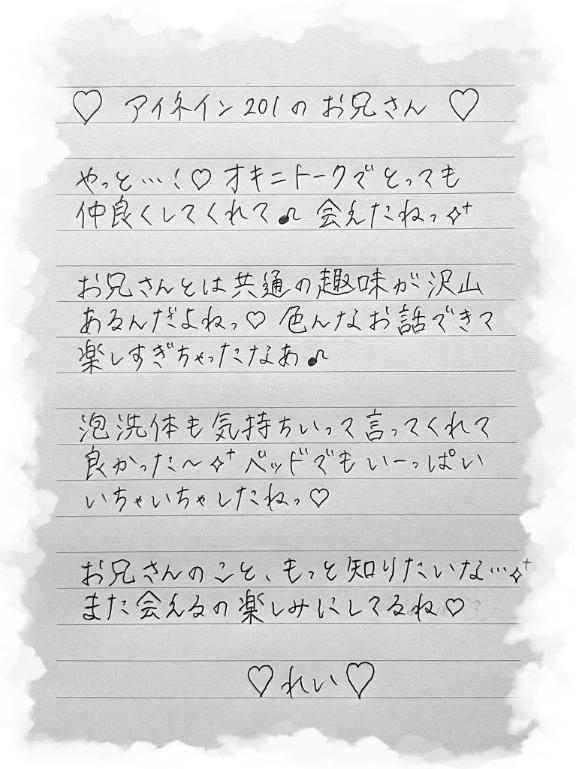 ♡ アイネイン201のお兄さん ♡
やっと…！♡ オキニトークでとっても
仲良くしてくれて♪ 会えたねっ✧⁺
お兄さんとは共通の趣味が沢山
あるんだよねっ♡ 色んなお話できて
楽しすぎちゃったなあ♪
泡洗体も気持ちいって言ってくれて
良かった〜✧⁺ ベッドでもいーっぱい
いちゃいちゃしたねっ♡
お兄さんのこと、もっと知りたいな…✧⁺
また会えるの楽しみにしてるね♡
♡れい♡